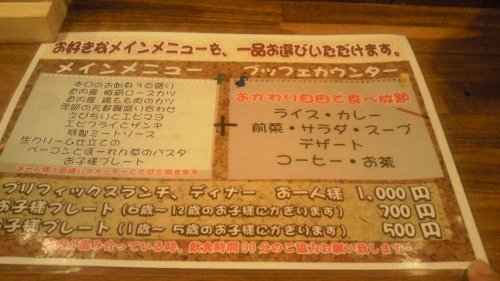 お好きなメインメニューを、一品お選びいただけます。
メインメニュー
本日のお刺身3点盛り
道内産 豚肩ロースカツ
道内産 鶏もも肉のカツ
季節の天ぷら盛り合わせ
えびちりとエビマヨ
エビフライとザンギ
特製ミートソース
生クリーム仕立ての
ベーコンとほーれん草のパスタ
お子様プレート
+
ブッフェカウンター
おかわり自由で食べ放題
ライス・カレー
前菜・サラダ・スープ
デザート
コーヒー・お茶
プリフィックスランチ、ディナー お一人様 1,000円
お子様プレート (6歳～12歳のお子様にかぎります) 700円
お子様プレート (1歳～5歳のお子様にかぎります) 500円
混み合っている時、飲食時間90分のご協力お願い致します